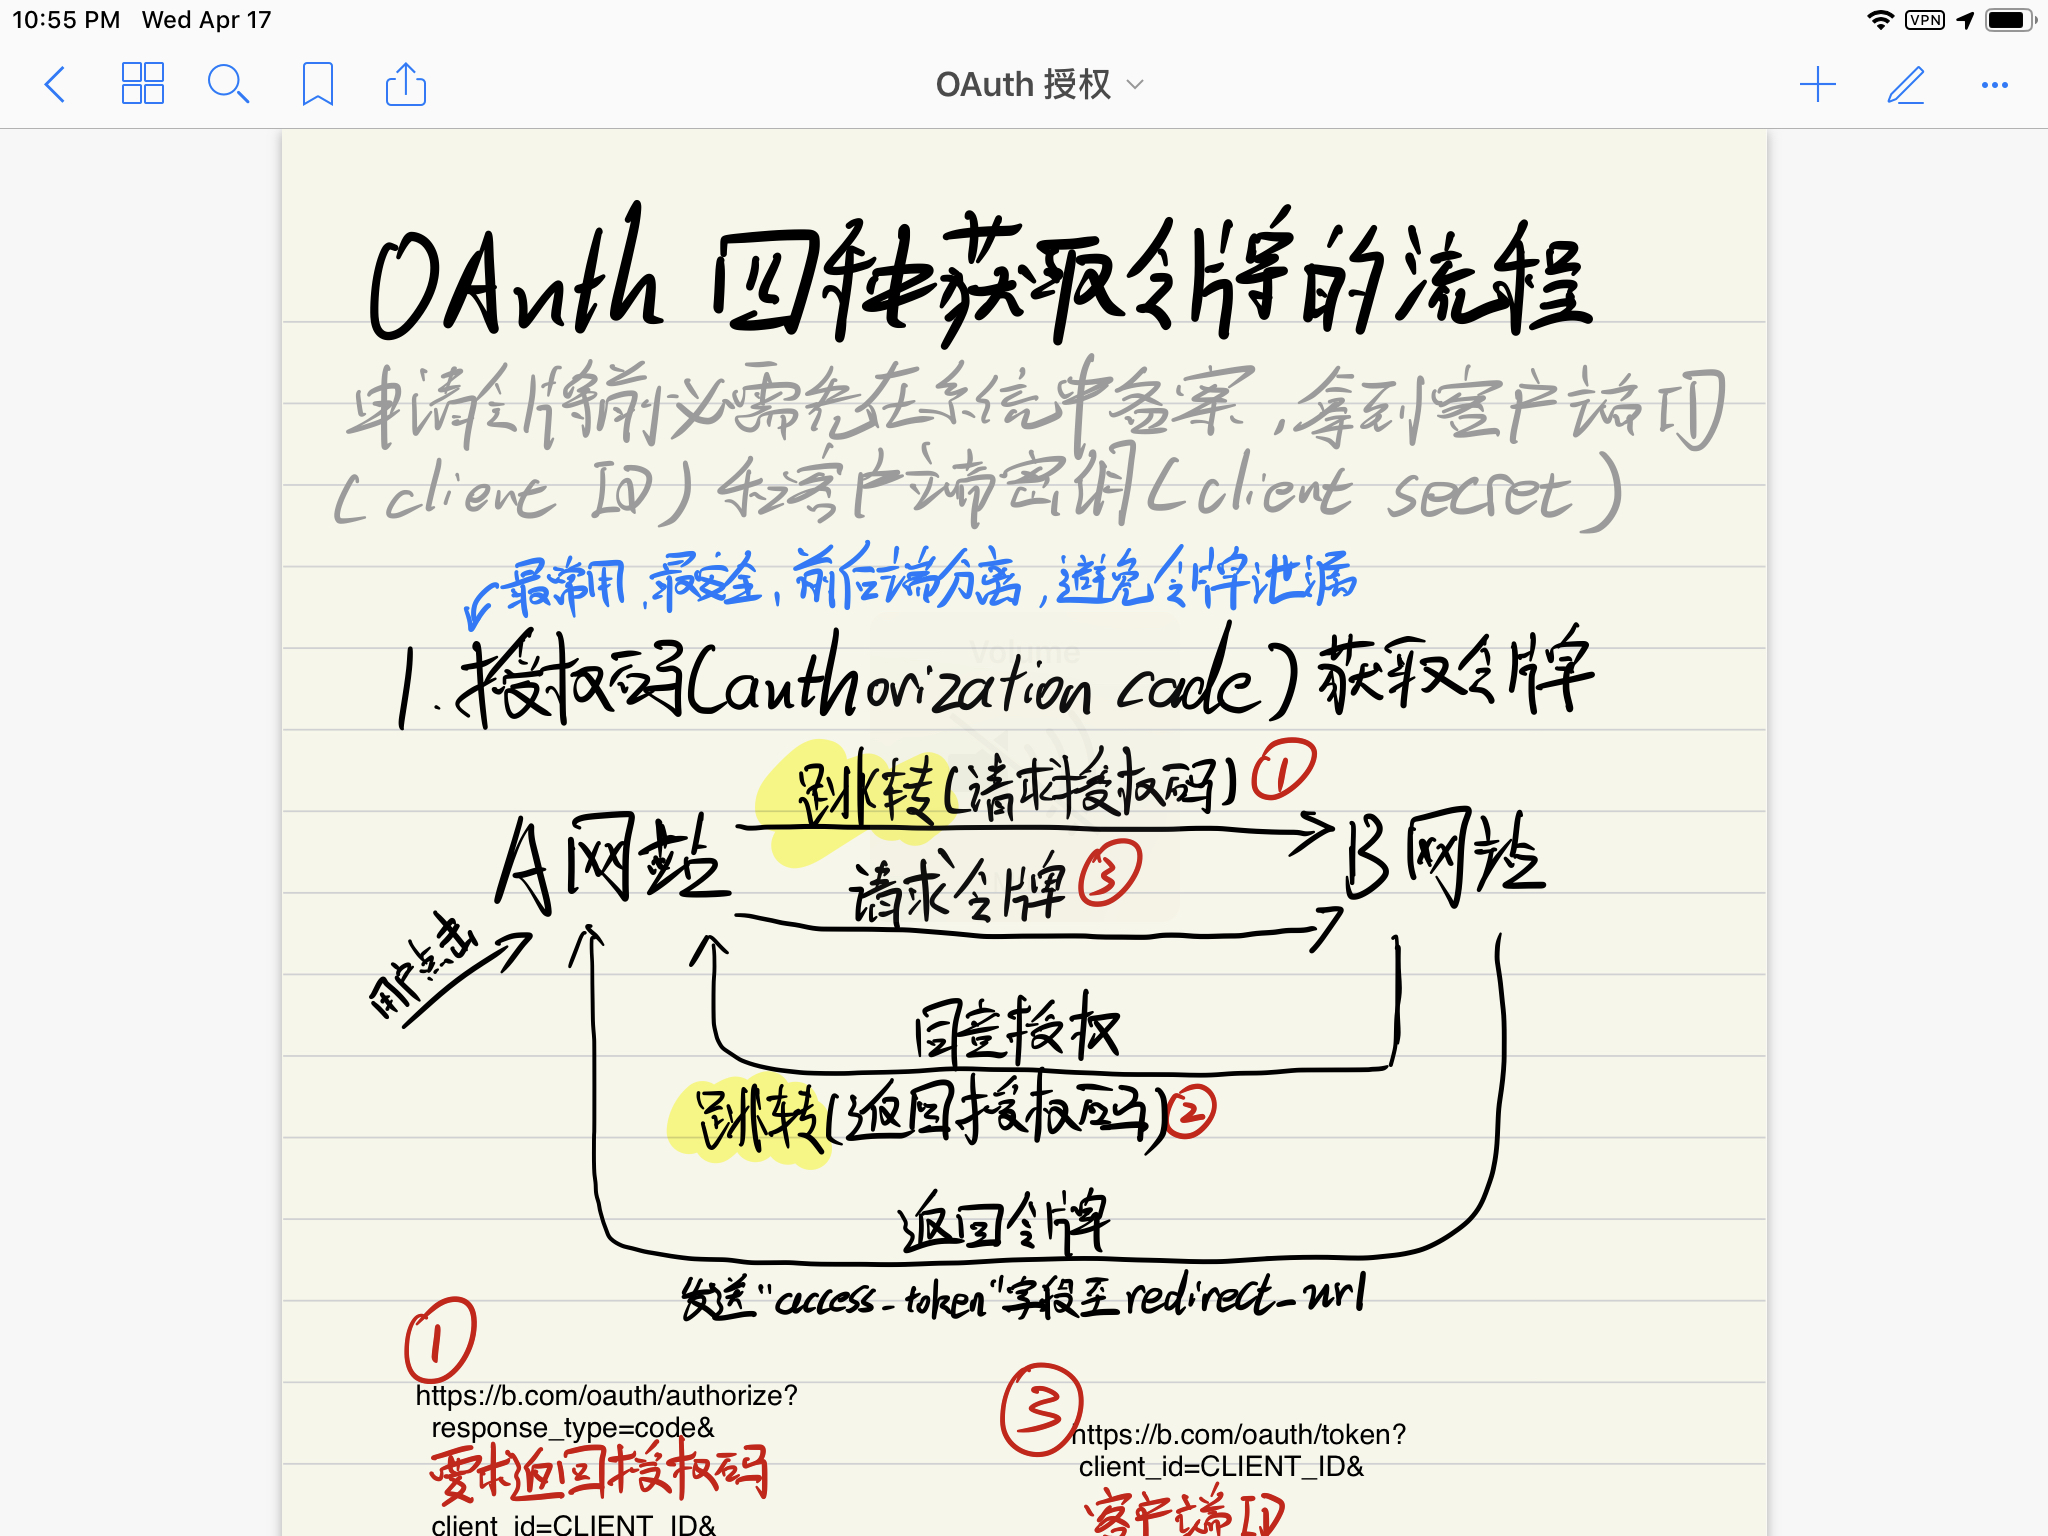 10:55 PM Wed Apr 17
VPN
OAuth 授权
OAuth 四种获取令牌的流程
申请令牌前必需先在系统中备案,拿到客户端ID
(client ID)和客户端密钥(client secret)
最常用,最安全,前后端分离,避免令牌泄漏
1.授权码(authorization code)获取令牌
跳转(请求授权码) ①
A网站
B网站
请求令牌 ③
用户点击
同意授权
跳转(返回授权码) ②
返回令牌
发送"access_token"字段至redirect_url
①
https://b.com/oauth/authorize?
response_type=code&
要求返回授权码
client_id=CLIENT_ID&
③
https://b.com/oauth/token?
client_id=CLIENT_ID&
客户端ID